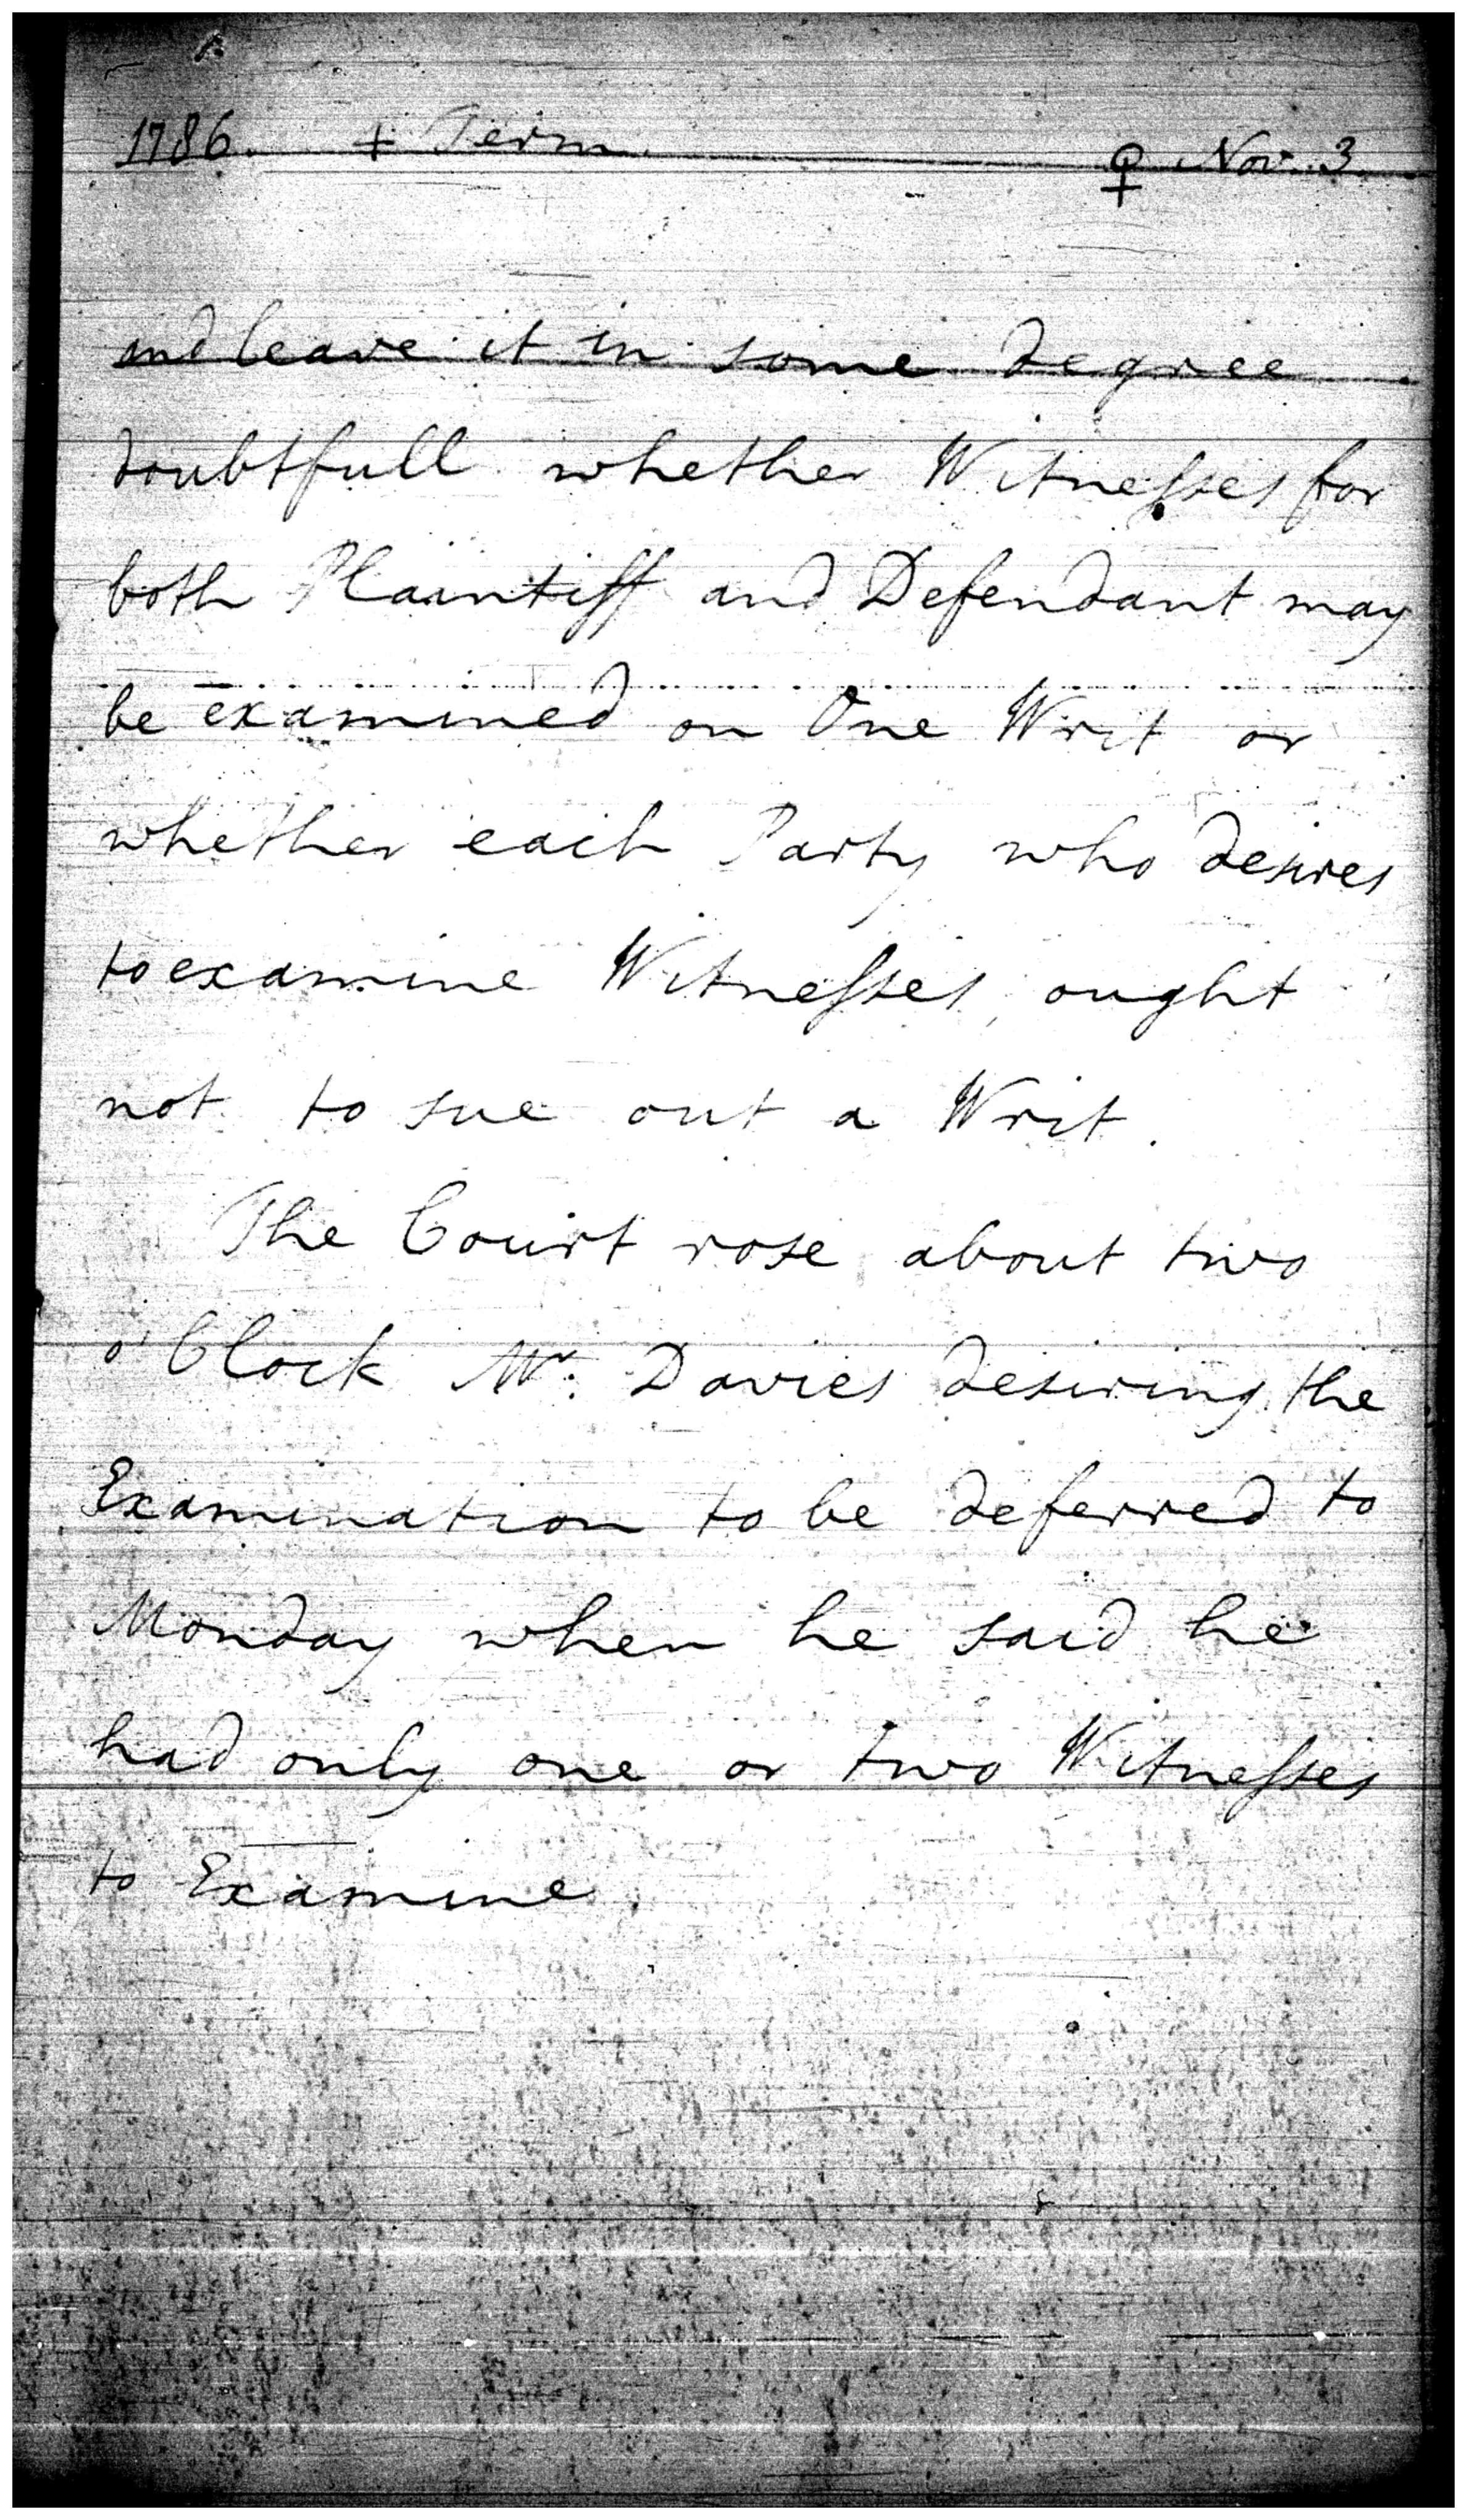 1786. + Term. ♀ Nov. 3.
and leave it in some degree
doubtfull whether Witnesses for
both Plaintiff and Defendant may
be examined on One Writ or
whether each Party who desires
to examine Witnesses, ought
not to sue out a Writ.
The Court rose about two
o'Clock Mr. Davies desiring the
Examination to be deferred to
Monday when he said he
had only one or two Witnesses
to Examine.